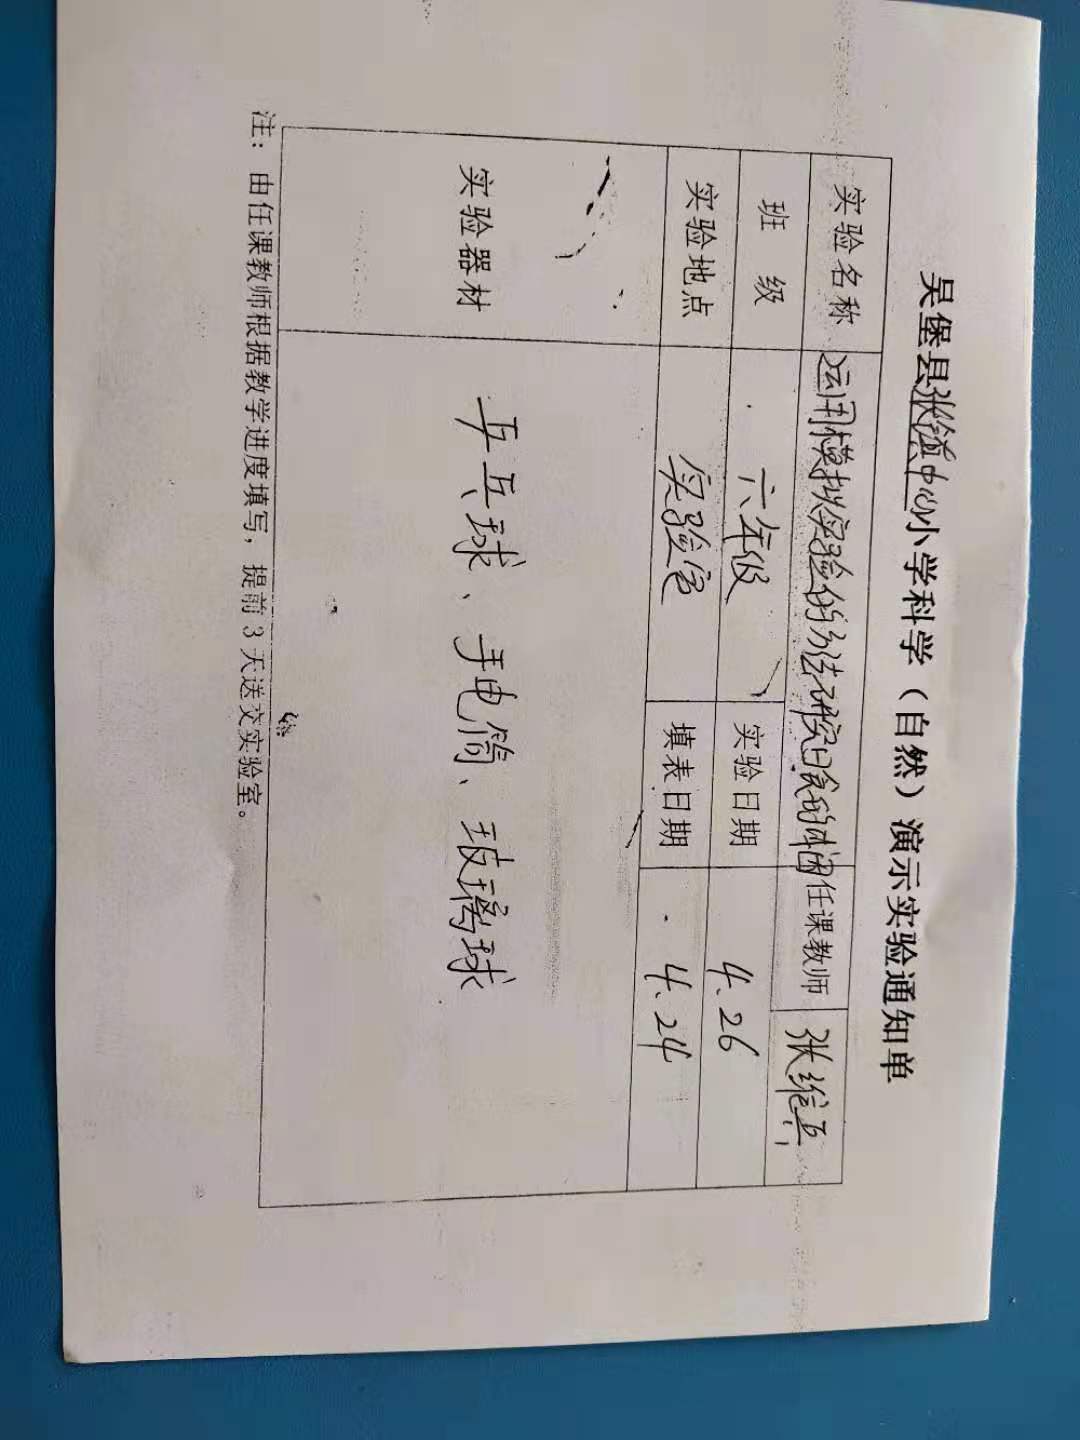 吴堡县张家山中心小学科学（自然）演示实验通知单
实验名称 运用模拟实验的方法研究日食的成因 任课教师 张维兵
班 级 六年级 实验日期 4.26
实验地点 实验室 填表日期 4.24
实验器材 乒乓球、手电筒、玻璃球
注：由任课教师根据教学进度填写，提前3天送交实验室。